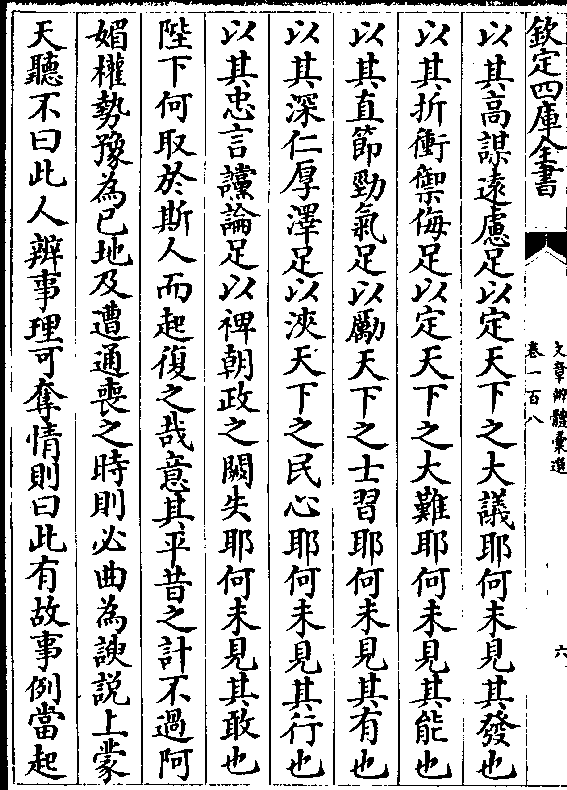 欽定四庫全書
文章辨體彙選
卷一百八
六
以其高謀遠慮足以定天下之大議耶何未見其發也
以其折衝禦侮足以定天下之大難耶何未見其能也
以其直節勁氣足以勵天下之士習耶何未見其有也
以其深仁厚澤足以浹天下之民心耶何未見其行也
以其忠言讜論足以裨朝政之闕失耶何未見其敢也
陛下何取於斯人而起復之哉意其平昔之計不過阿
媚權勢豫為已地及遭通喪之時則必曲為諛説上蒙
天聽不曰此人辨事理可奪情則曰此有故事例當起